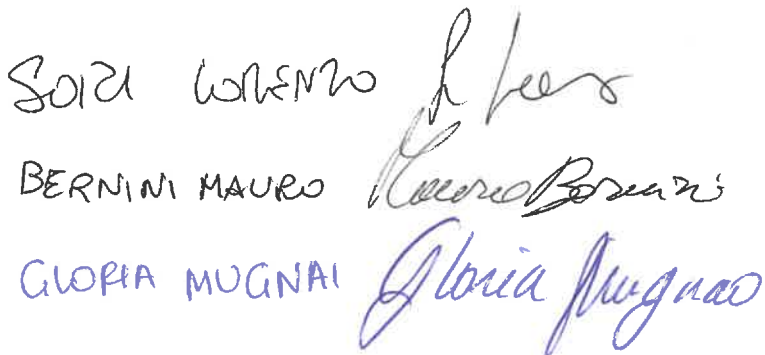 LORENZO
BERNINI MAURO Mauro Bernini
GLORIA MUGNAI Gloria Mugnai